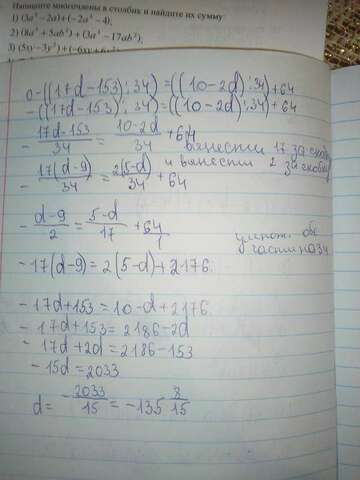 Напишите многочлены в столбик и найдите их сумму
1) (3a³ − 2a) + (−2a³ − 4);
2) (8a³ + 5ab²) + (3a³ − 17ab²);
0-((17d-153):34)=((10-2d):34)+64
-((17d-153):34)=((10-2d):34)+64
- 17d-153/34 = 10-2d/34 +64
вынести 17 за скобку
- 17(d-9)/34 = 2(5-d)/34 + 64
и вынести 2 за скобку
- d-9/2 = 5-d/17 + 64/1
обе части на 34
-17(d-9)=2(5-d)+2176
-17d+153=10-d+2176
- 17d+153=2186-2d
- 17d+2d=2186-153
- 15d=2033
d= - 2033/15 = -135 8/15